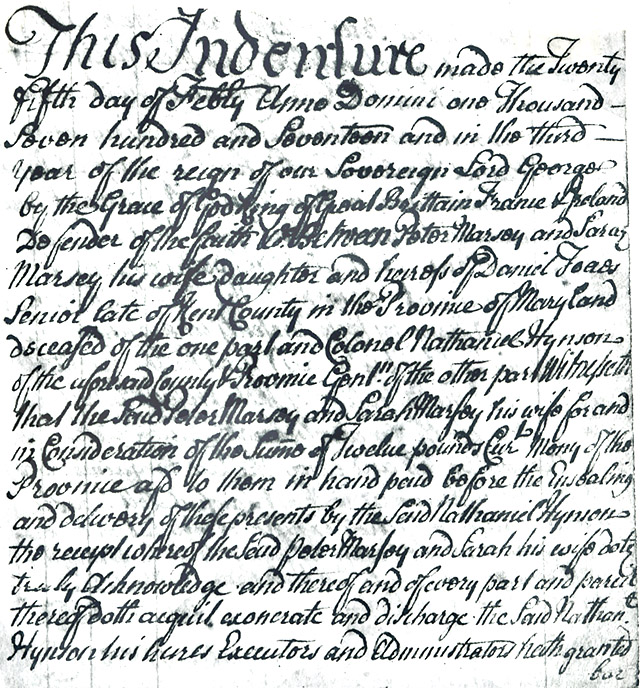 This Indenture made the Twenty
fifth day of Febry Anno Domini one thousand
Seven hundred and Seventeen and in the third
year of the reign of our Sovereign Lord George
by the Grace of God King of Great Brittain France & Ireland
Defender of the faith &c Between Peter Marsey and Sarah
Marsey his wife daughter and heiress of Daniel
Senior late of Kent County in the Province of Maryland
deceased of the one part and Colonel Nathaniel Hynson
of the aforesaid County & Province Gentn of the other part Witnesseth
that the Said Peter Marsey and Sarah Marsey his wife for and
in Consideration of the Sume of Twelve pounds Curt Mony of the
Province afd to them in hand paid before the Ensealing
and delivery of these presents by the Said Nathaniel Hynson
the receipt whereof the Said Peter Marsey and Sarah his wife doth
truly Acknowledge and thereof and of every part and parcel
thereof doth acquit exonerate and discharge the Said Nathanl
Hynson his heires Executors and Administrators hath granted
bar